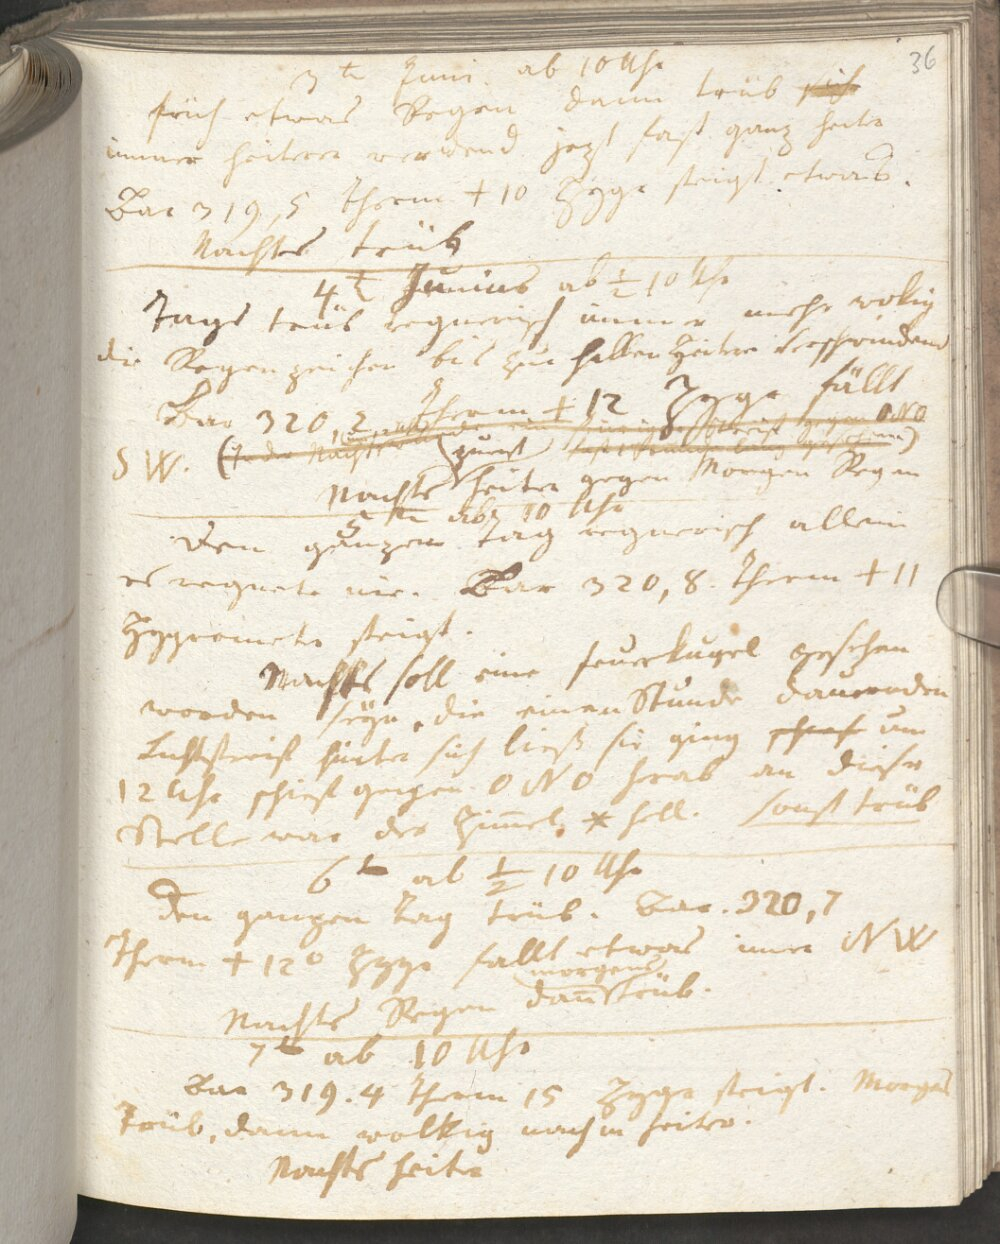 36
3te Juni. ab 10 Uhr
früh etwas Regen dann trüb
immer heiterer werdend jezt fast ganz heiter
Bar 319,5 Therm +10 Hygr steigt etwas.
Nachts trüb
4t Junius ab ½ 10 Uhr
Tags trüb regnerisch immer mehr wolkig
die Regenzeichen bis zur hellen Heitre verschwindend
Bar 320,2 Therm + 12 Hygr fällt
SW. (In der Nachts zuerst gegen ONO
Nachts heiter gegen Morgen Regen
5te ab 10 Uhr
Den ganzen Tag regnerisch allein
es regnete nie. Bar 320,8. Therm +11
Hygrometer steigt.
Nachts soll eine Feuerkugel gesehen
worden seyn, die einen Stunde dauernden
Lichtstreif hinter sich ließ sie ging um
12 Uhr schief gegen ONO herab an dieser
Stelle war der Himmel * hell. sonst trüb
6t ab ½ 10 Uhr
Den ganzen Tag trüb. Bar. 320,7
Therm + 12° Hygr fällt etwas immer NW
morgens
Nachts Regen dann trüb.
7t ab 10 Uhr
Bar 319.4 Therm 15 Hygr steigt. Morgens
Trüb, dann wolkig nachm heiter.
Nachts heiter